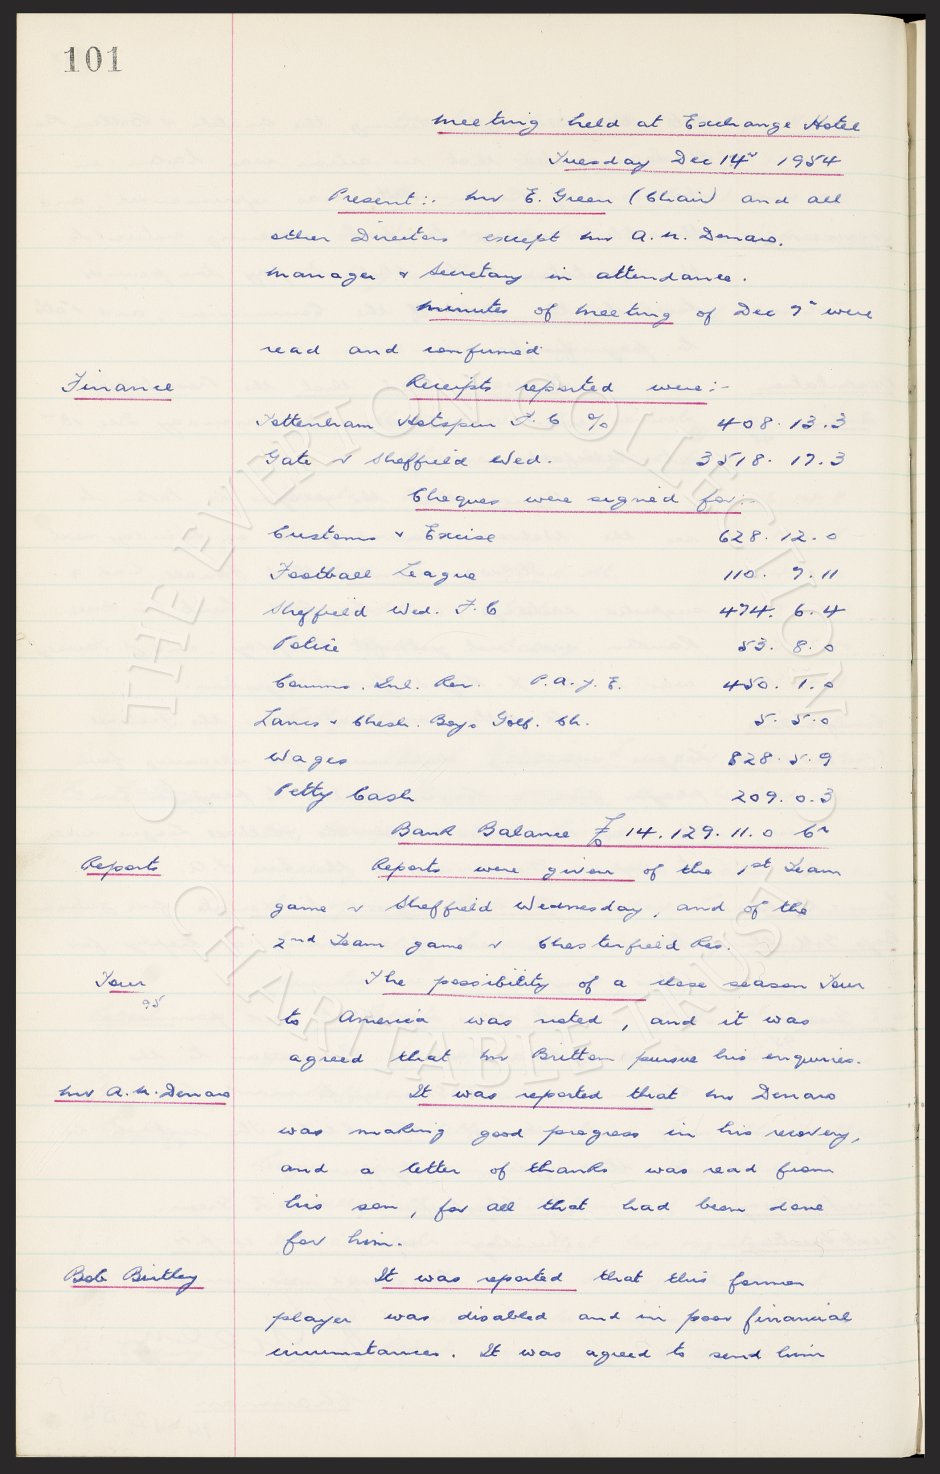 101
Meeting held at Exchange Hotel
Tuesday Dec 14th 1954
Present:. Mr E. Green (Chair) and all
other Directors except Mr A. M. Denaro.
Manager & Secretary in attendance.
Minutes of Meeting of Dec 7th were
read and confirmed
Finance
Receipts reported were:-
Tottenham Hotspur F. C % 408. 13. 3
Gate v Sheffield Wed. 3518. 17. 3
Cheques were signed for:-
Customs & Excise 628. 12. 0
Football League 110. 7. 11
Sheffield Wed. F. C 474. 6. 4
Police 53. 8. 0
Comms. Inl. Rev. P. A. Y. E. 450. 1. 0
Lancs & Chesh. Boys Golf. Ch. 5. 5. 0
Wages 828. 5. 9
Petty Cash 209. 0. 3
Bank Balance £14,129. 11. 0 Cr
Reports
Reports were given of the 1st Team
game v Sheffield Wednesday, and of the
2nd Team game v Chesterfield Res.
Tour
95
The possibility of a close season Tour
to America was noted, and it was
agreed that Mr Britton pursue his enquiries.
Mr A. M. Denaro
It was reported that Mr Denaro
was making good progress in his recovery,
and a letter of thanks was read from
his son, for all that had been done
for him.
Bob Birtley
It was reported that this former
player was disabled and in poor financial
circumstances. It was agreed to send him
THE EVERTON COLLECTION
CHARITABLE TRUST